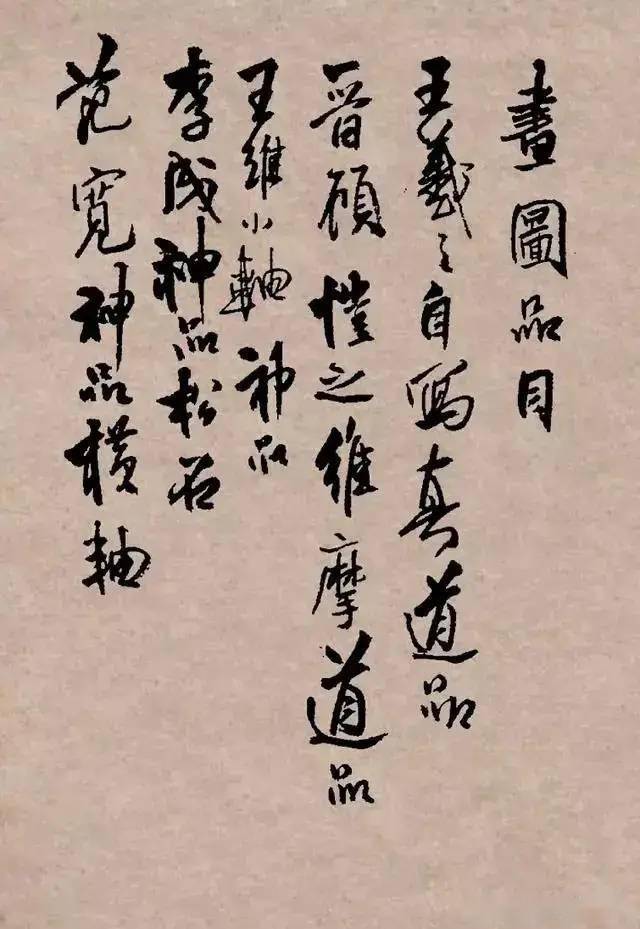 畫圖品目
王羲之自寫真道品
晉顧愷之維摩道品
王維小軸神品
李成神品松石
范寬神品橫軸